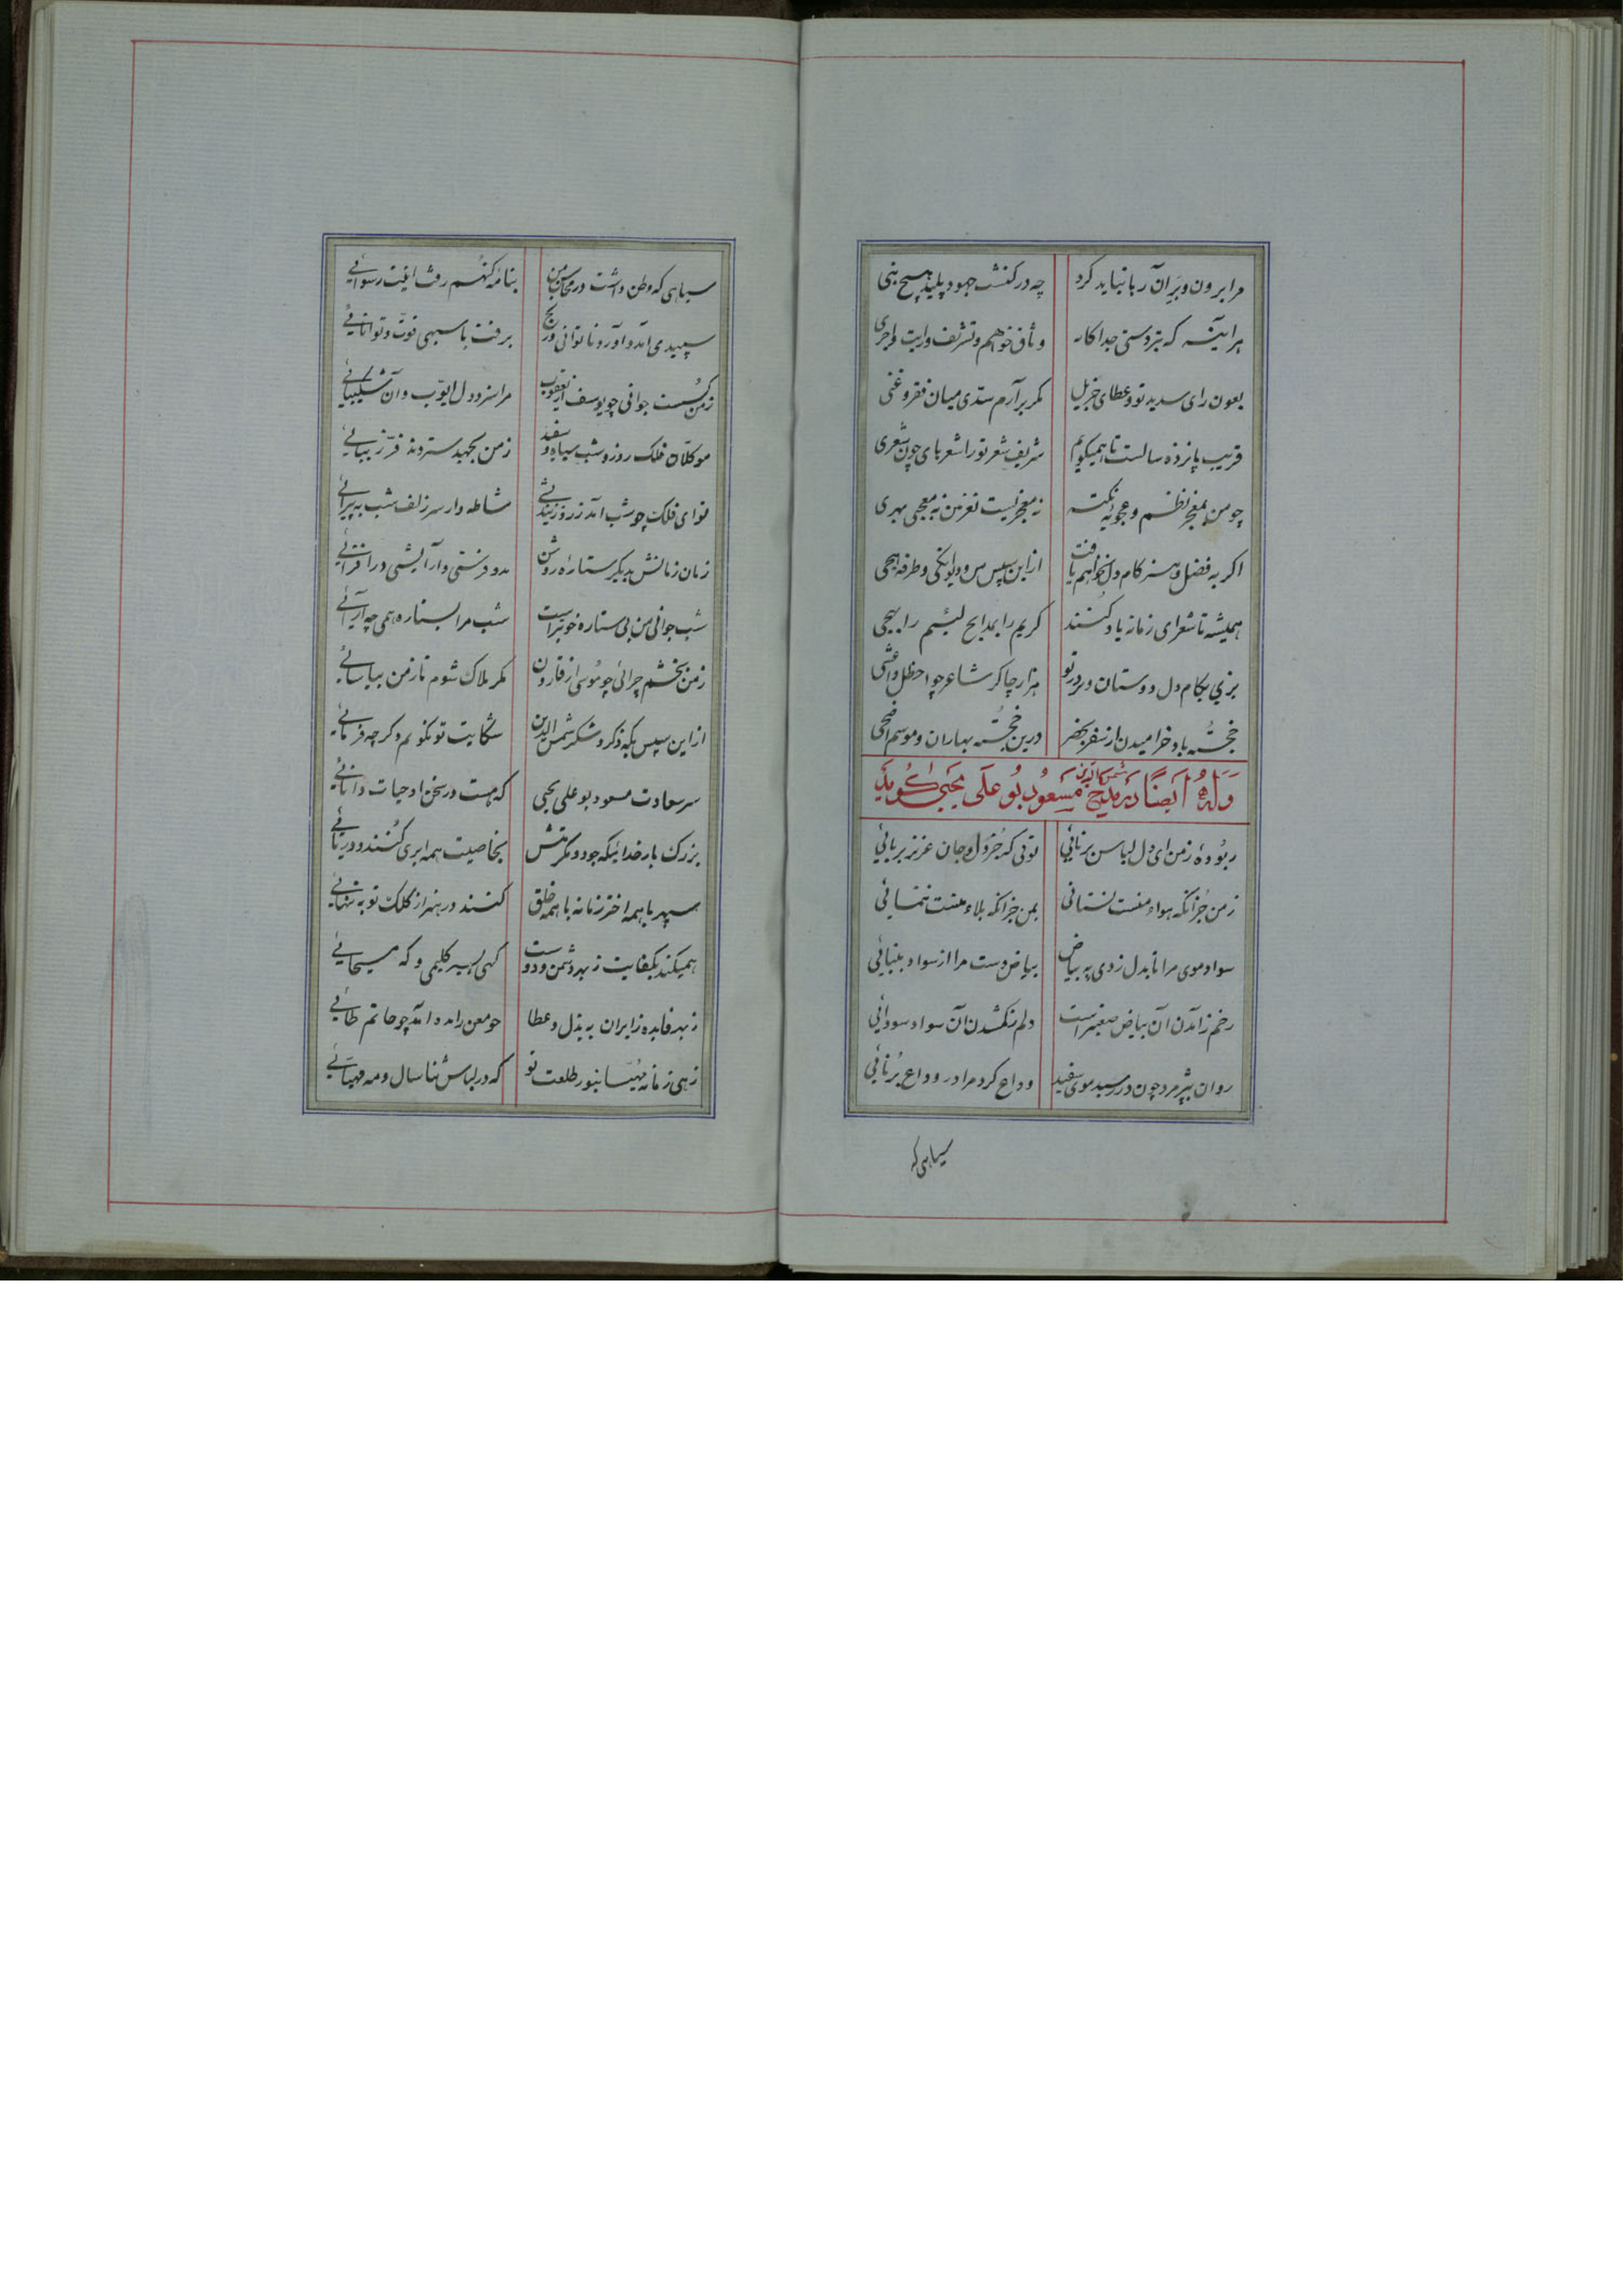 مرا برون و بر آن ربا نباید کرد چه در کنشت جهود پلید هیچ بنی
هر آینه که بتر دستی جداکار وثاق خواهم و تشریف و راتب و اجری
بعون رای سدید تو و عطای جزیل مگر برآرم سدی میان فقر و غنی
قریب پانزده سالست تا همیکویم شریف شعر تو را شعرهای چون شعری
چو من بمغز نظم و عجوبه نکته نه معجز نیست نغز من نه معجی بهری
اکر به فضل و هنر کام دل نخواهم یافت ازاین سپس من و دیوانکی و طرفه هجی
همیشه تا شعرای زمانه یاد کنند کریم را بمدایح لئیم را بهجی
بزی بکام دل دوستان و بر در تو هزار چاکر شاعر چو احطل و اعشی
خجسته باد خرامیدن از سفر بحضر درین خجسته بهاران و موسم اضحی
وله ایضا در مدیح شمس الدین مسعود بو علی یحیی کوید
ربوده زمن ای دل لباس برنائی توئی که جز دل و جان عزیز بربائی
زمن جز آنکه هواء منست نستانی بمن جز آنکه بلاء منست ننمائی
سواد موی مرا تا بدل زدی به بیاض بیاض دست مرا از سواد بینائی
رخم ز آمدن آن بیاض صفیراست دلم ز کشدن آن سواد سودائی
روان پژمرد چون در رسید موی سفید وداع کرد مرا در وداع برنائی
سیاهی که
سیاهی که وطن داشت در محاسن من بنامه کنهم رفت اینت رسوائی
سپیدی آمد و آورد ناتوانی و رنج برفت با سیهی قوت و توانائی
زمن کسست جوانی چو یوسف از یعقوب مرا سزد دل ایوب و آن شکیبائی
موکلان فلک روز و شب سیاه و سفید زمن بجهد ستردند فر زیبائی
نوای فلک چو شب آمد ز روز زیندئی مشاطه وار سر زلف شب به پیرائی
زمان زمانش بدیکر ستاره روشن مدد فرستی و آرایشی درافزائی
شب جوانی من بی ستاره خوبتر است شب مرا بستاره همی چه آرائی
زمن بخشم چرائی چو موسی از قارون مکر هلاک شوم تا زمن بیاسائی
ازاین سپس بکه ذکر و شکر شمس الدین شکایت تو نکویم و کر چه فرمائی
سر سعادت مسعود بو علی یحیی که هست در سخن او حیات دانائی
بزرک بار خدائیکه جود و مکرمتش بخاصیت همه ابری کنند و دریائی
سپهر با همه اختر زمانه با همه خلق کنند در هنر از کلک تو به تنهائی
همیکند بکفایت ز بهر دشمن و دوست کهی بسیر کلیمی و که مسیحائی
ز بهر فایده زایران به بذل و عطا چو معن زائده آمد چو حاتم طائی
زهی زمانه مهیا بنور طلعت تو که در لباس ثنا سال و مه مهیائی